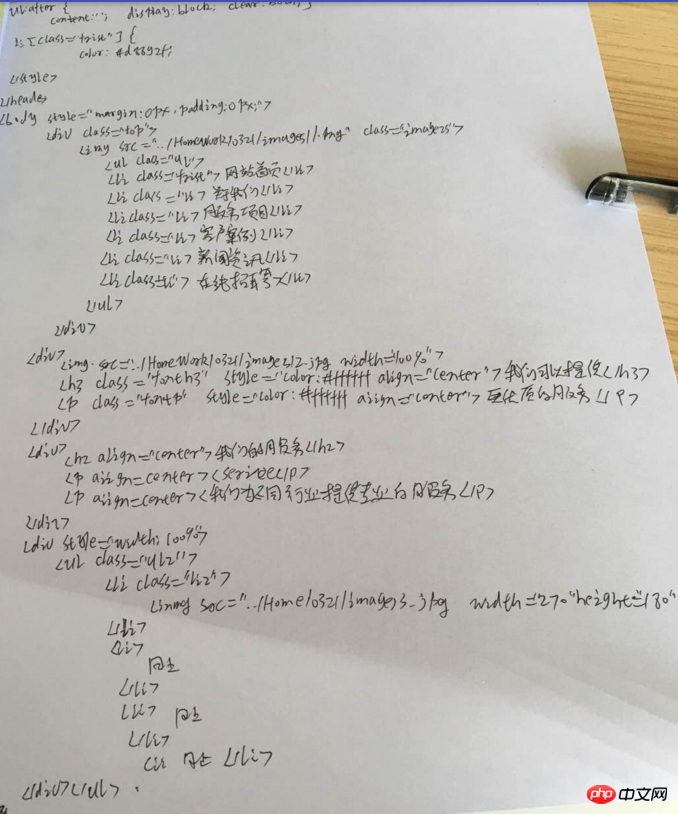 ul:after {
content:""; display:block; clear:both; }
li[class="first"] {
color: #d8892f;
</style>
</head>
<body style="margin:0px, padding:0px;">
<div class="top">
<img src="../HomeWork/0321/images/1.png" class="images">
<ul class="ul">
<li class="first">网站首页</li>
<li class="li">关于我们</li>
<li class="li">服务项目</li>
<li class="li">客户案例</li>
<li class="li">新闻资讯</li>
<li class=li">在线招募</li>
</ul>
</div>
<div><img src="../HomeWork/0321/images/2.jpg width=100%">
<h3 class="fonth3" style="color:#ffffff align="center">我们可以提供</h3>
<p class="fontp" style="color:#ffffff align="center">更优质的服务</p>
</div>
<div><h2 align="center">我们的服务</h2>
<p align=center><service</p>
<p align=center><我们为不同行业提供专业的服务</p>
</div>
<div style="width:100%">
<ul class="ul2">
<li class="li2">
<inmg soc="../Home/0321/image/3.jpg width="270"height="180"
</li>
<li>
同上
</li>
<li> 同上
</li>
<li 同上 </li>
</div></ul>
php 中文网